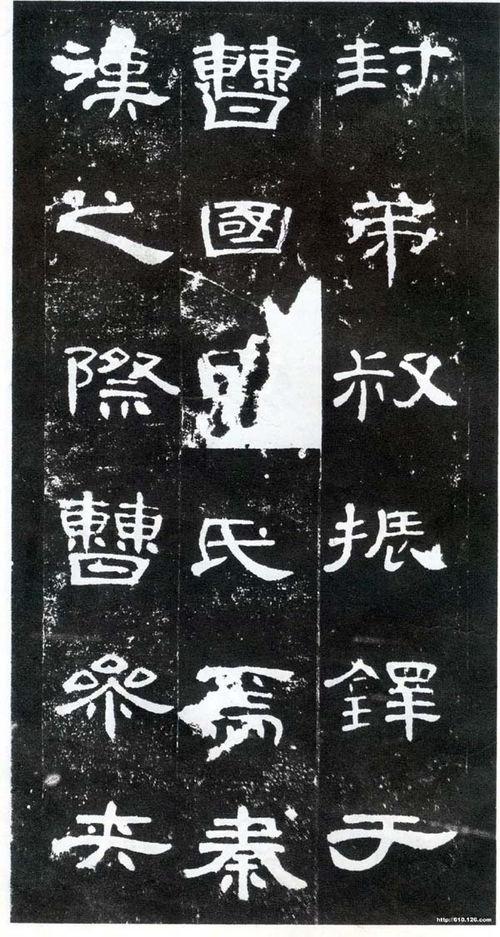 封弟叔振鐸于
曹國氏焉秦
漢之際曹參夾
http://610.126.com